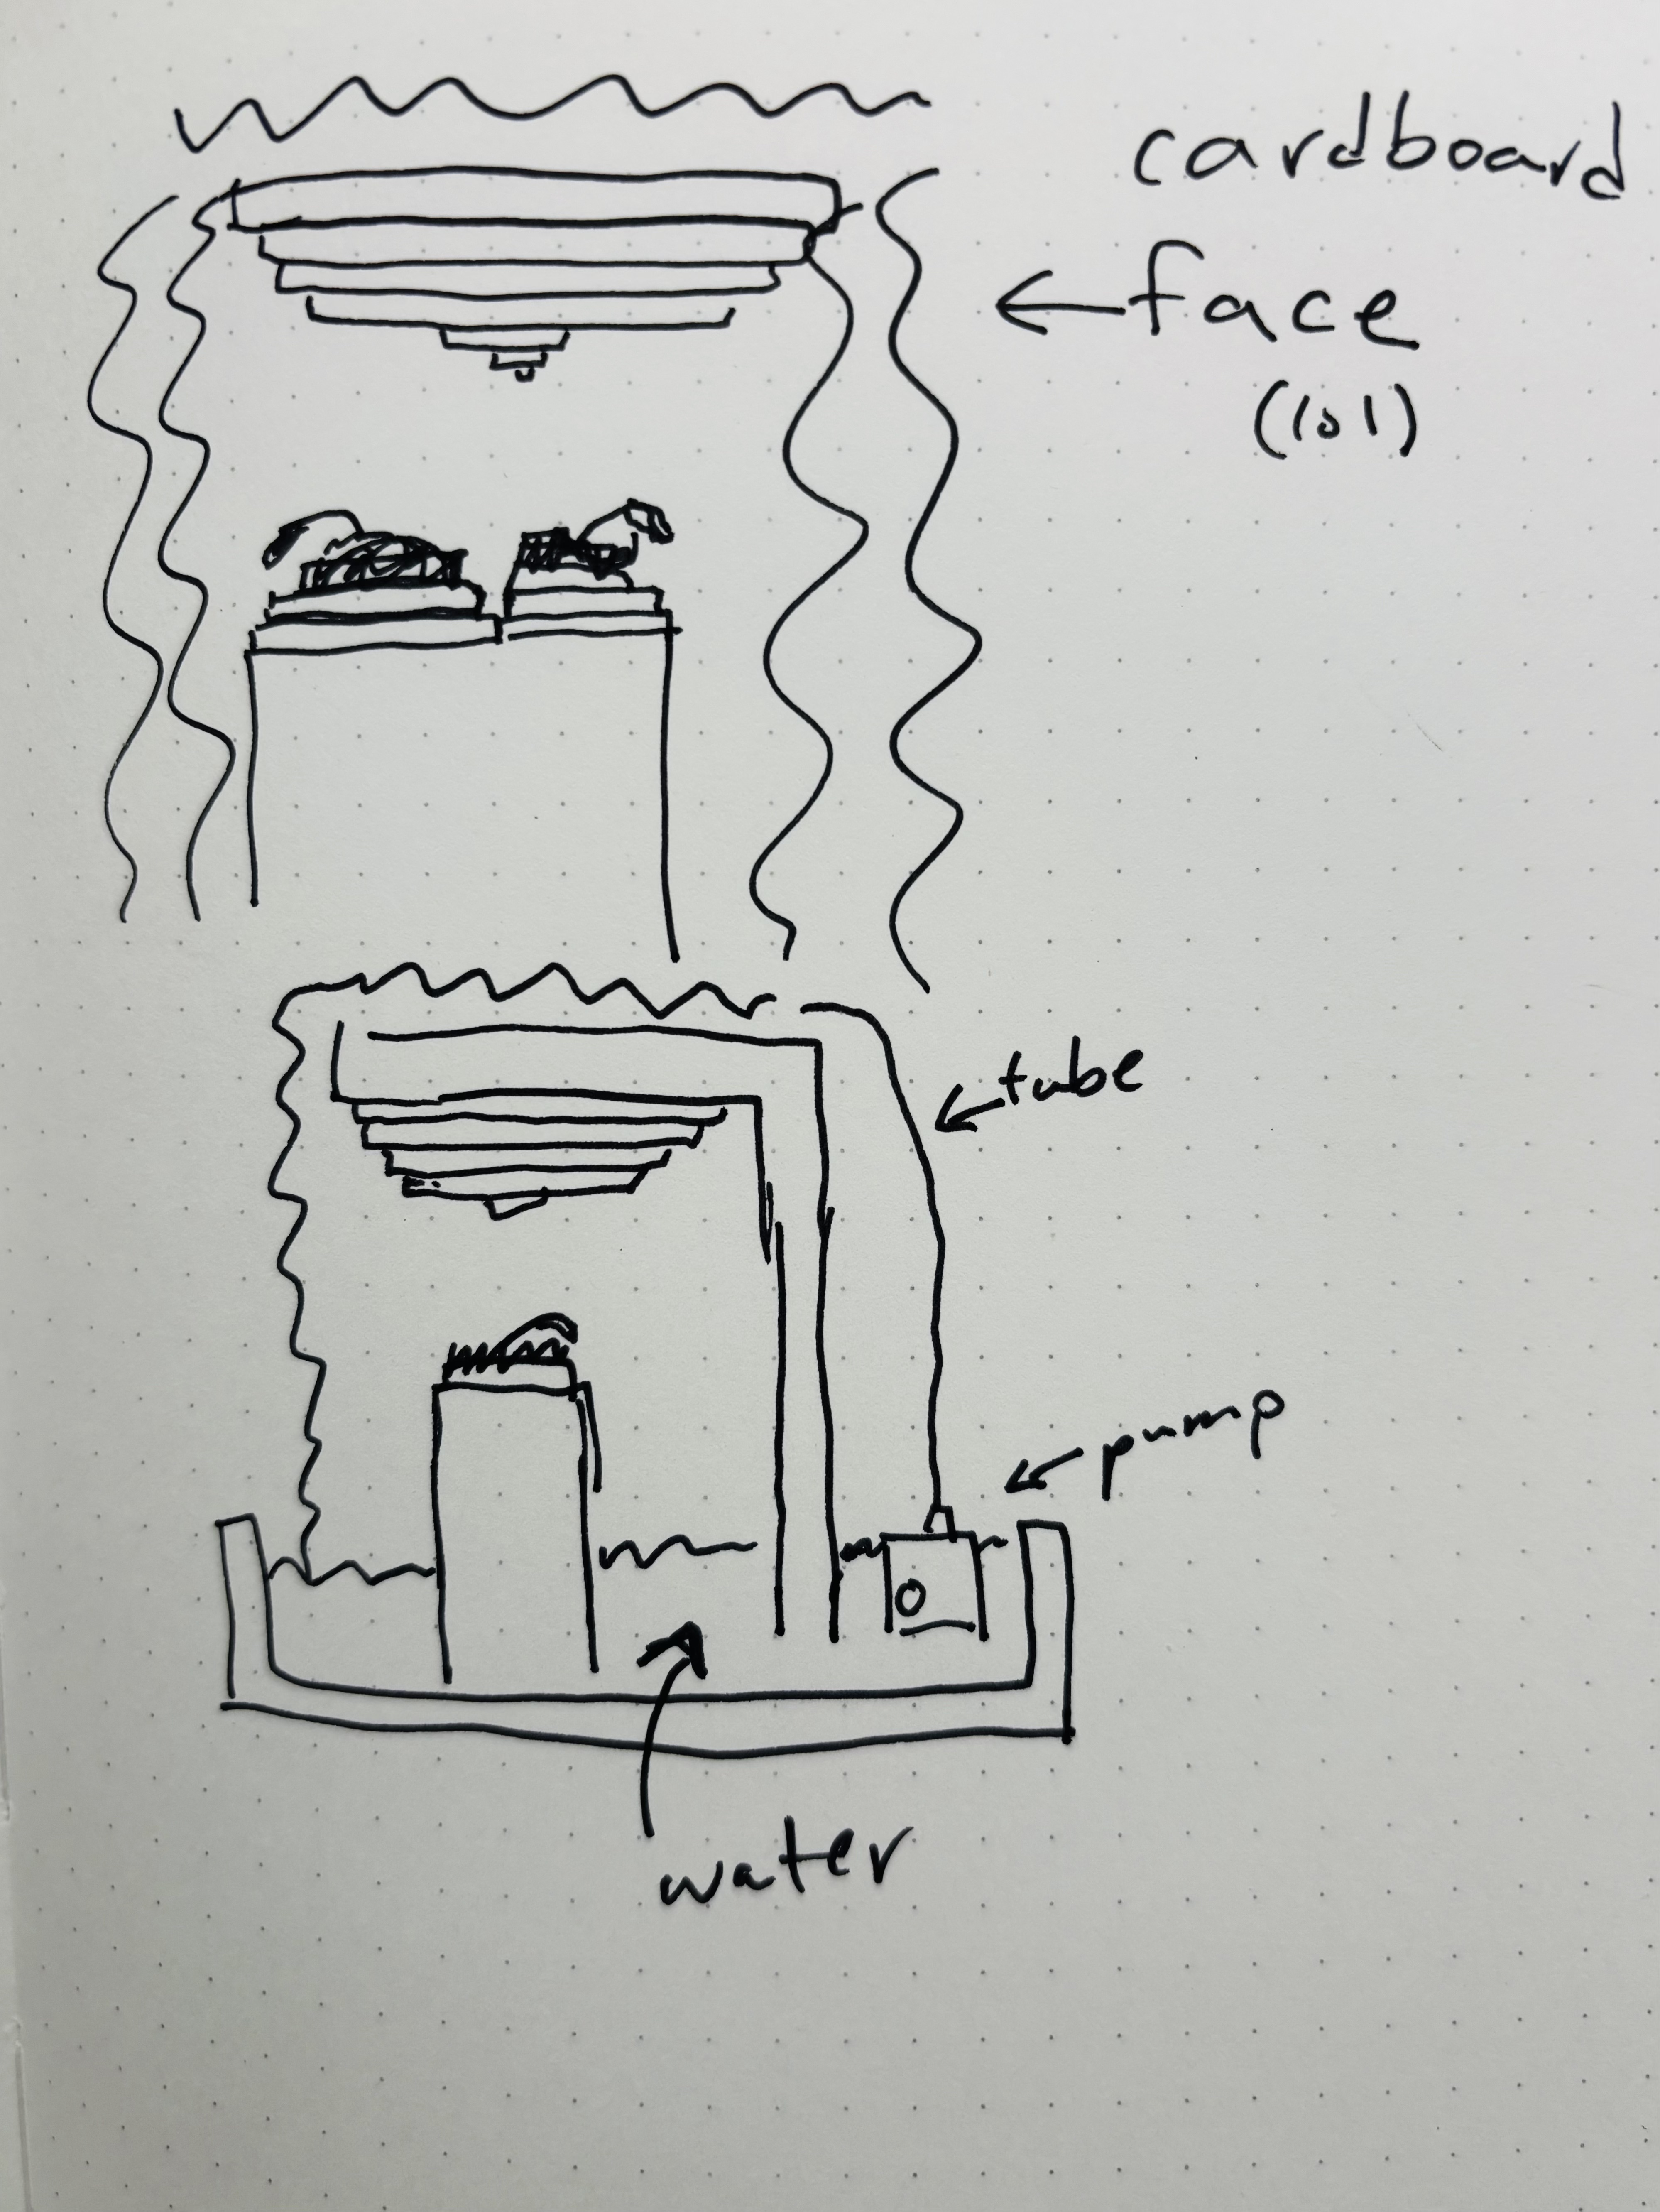 cardboard
face
(lol)
tube
pump
water